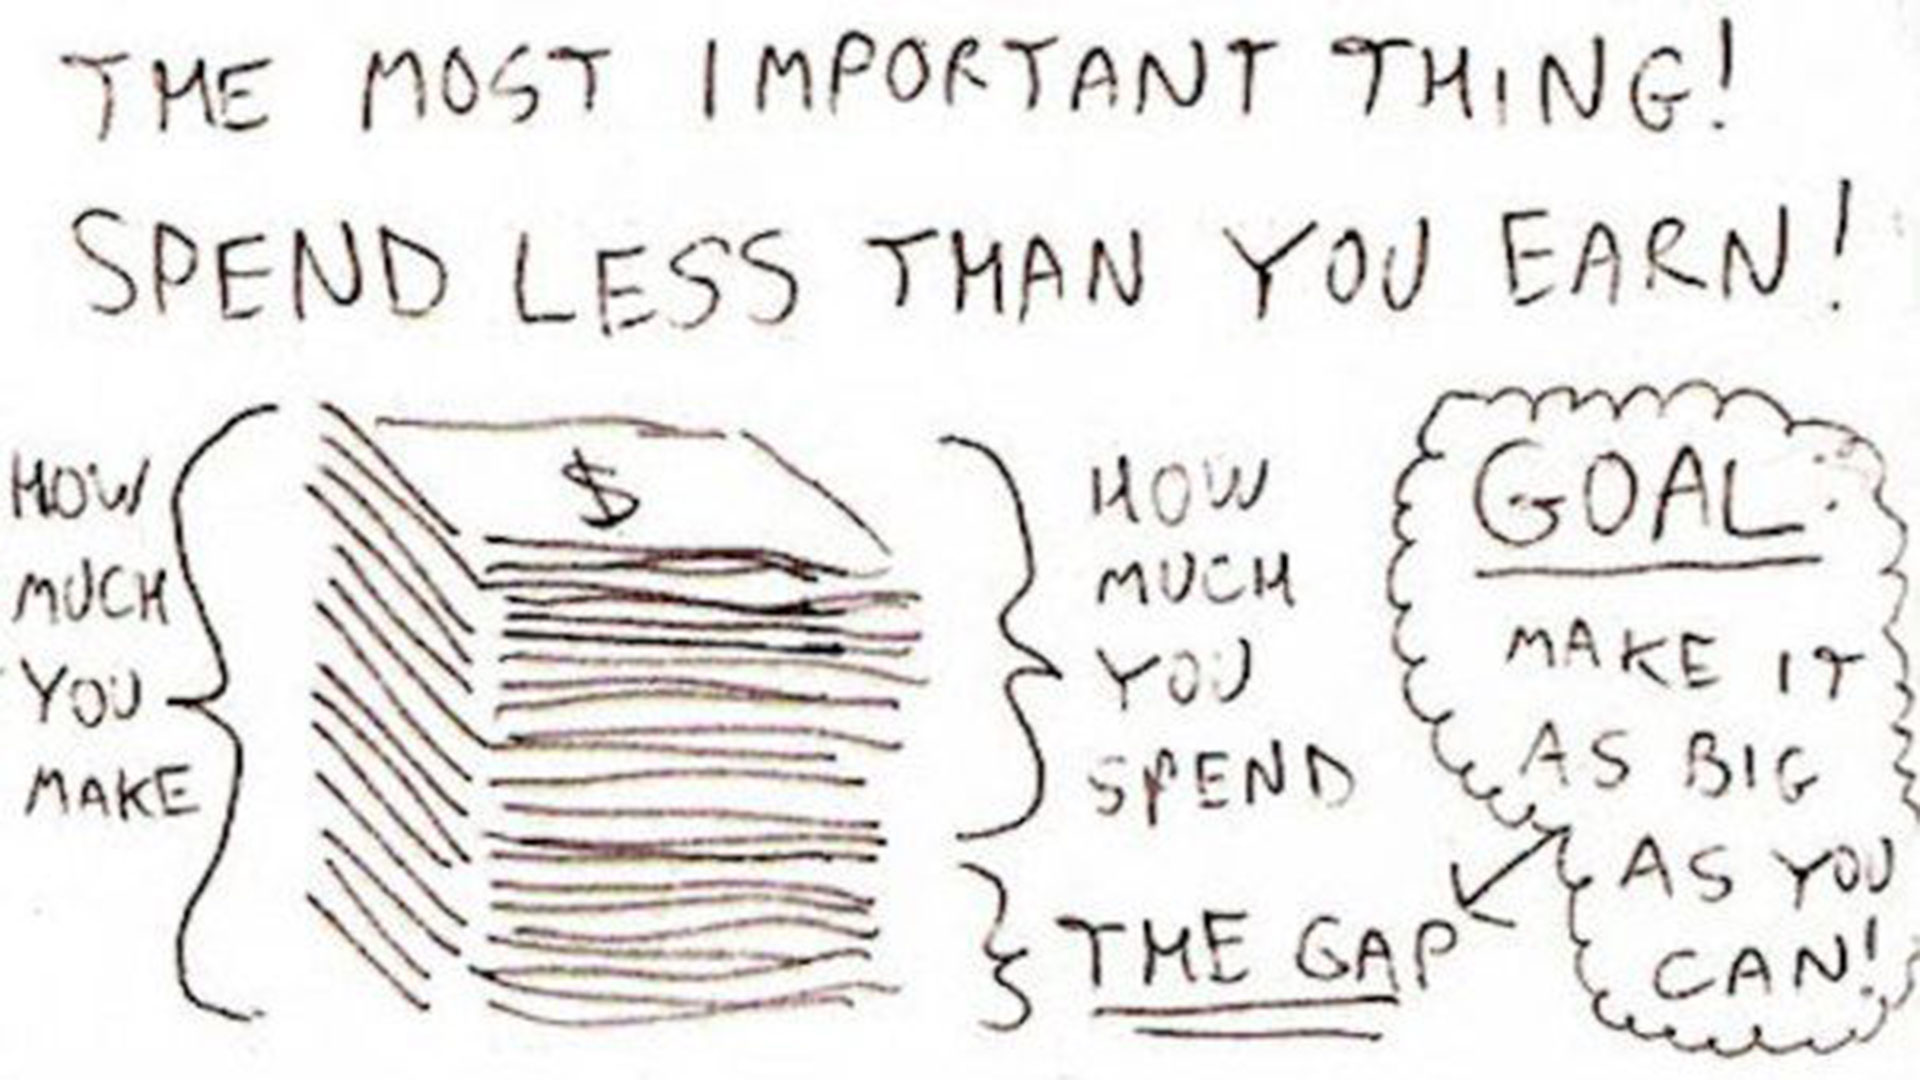 THE MOST IMPORTANT THING!
SPEND LESS THAN YOU EARN!
HOW
MUCH
YOU
MAKE
$
HOW
MUCH
YOU
SPEND
THE GAP
GOAL:
MAKE IT
AS BIG
AS YOU
CAN!